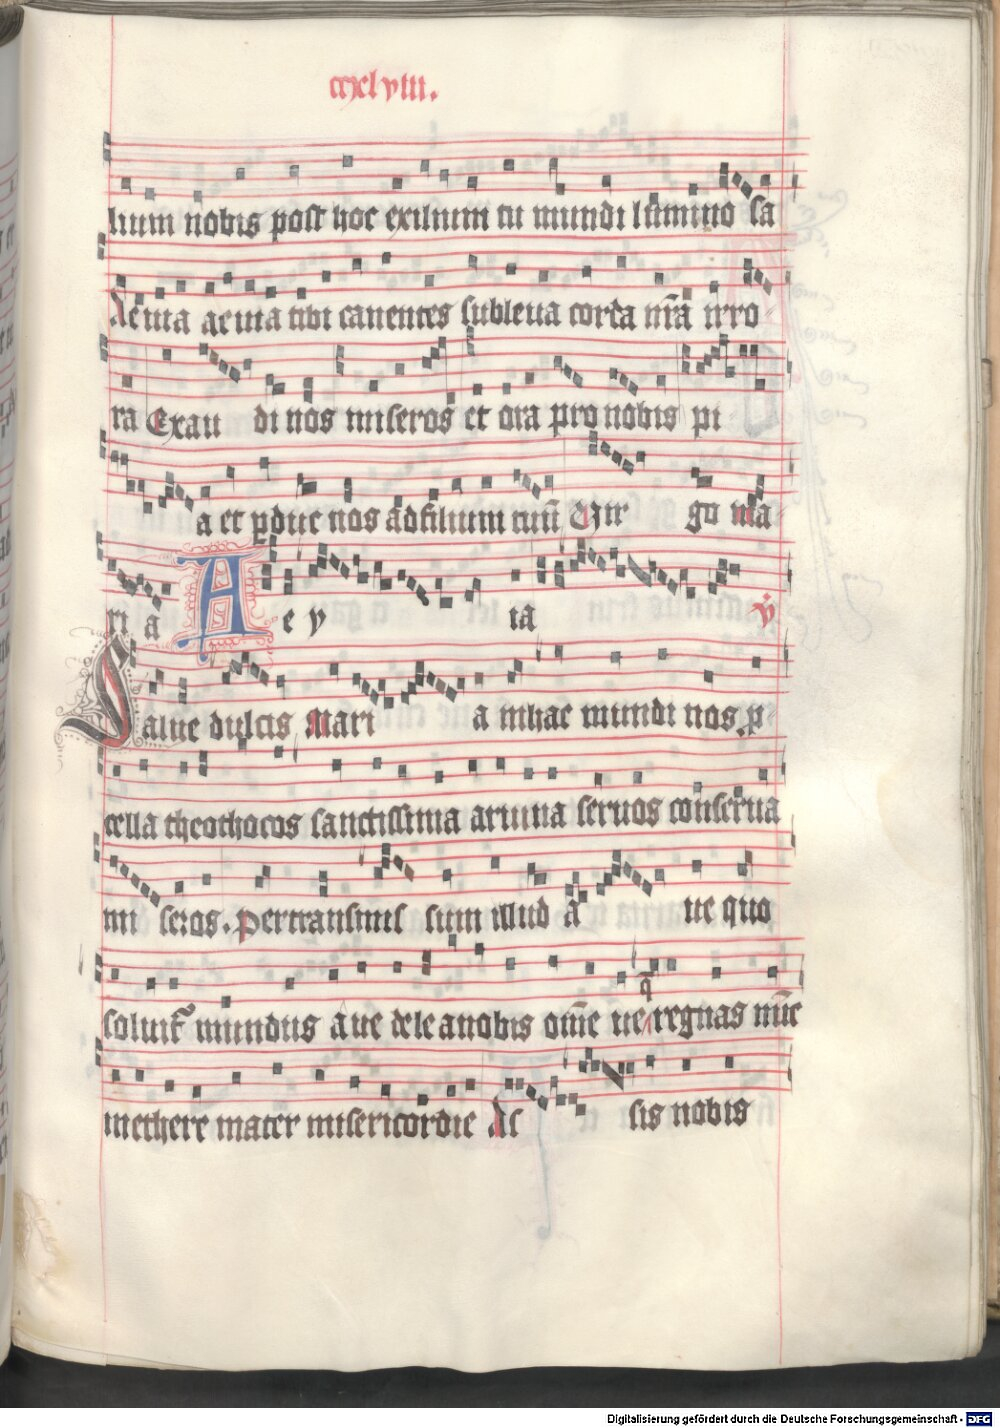 ccxlviii.
lium nobis post hoc exilium tu mundi lumino sa
Aeuia aeuia tibi canentes subleua corda nr̄a irro
ra Exau di nos miseros et ora pro nobis pi
a et p̱duc nos ad filium tuū Vir go ma
ri a A e v ia ℣
Salue dulcis Mari a in hac mundi nos p
cella theothocos sanctissima armua seruos conserua
mi seros. Pertransiuit sim illud a ue quo
soluit᷑ mundus aue dele a nobis om̄e ue q̄ regnas nūc
in ethere mater misericordie As sis nobis
Digitalisierung gefördert durch die Deutsche Forschungsgemeinschaft - DFG